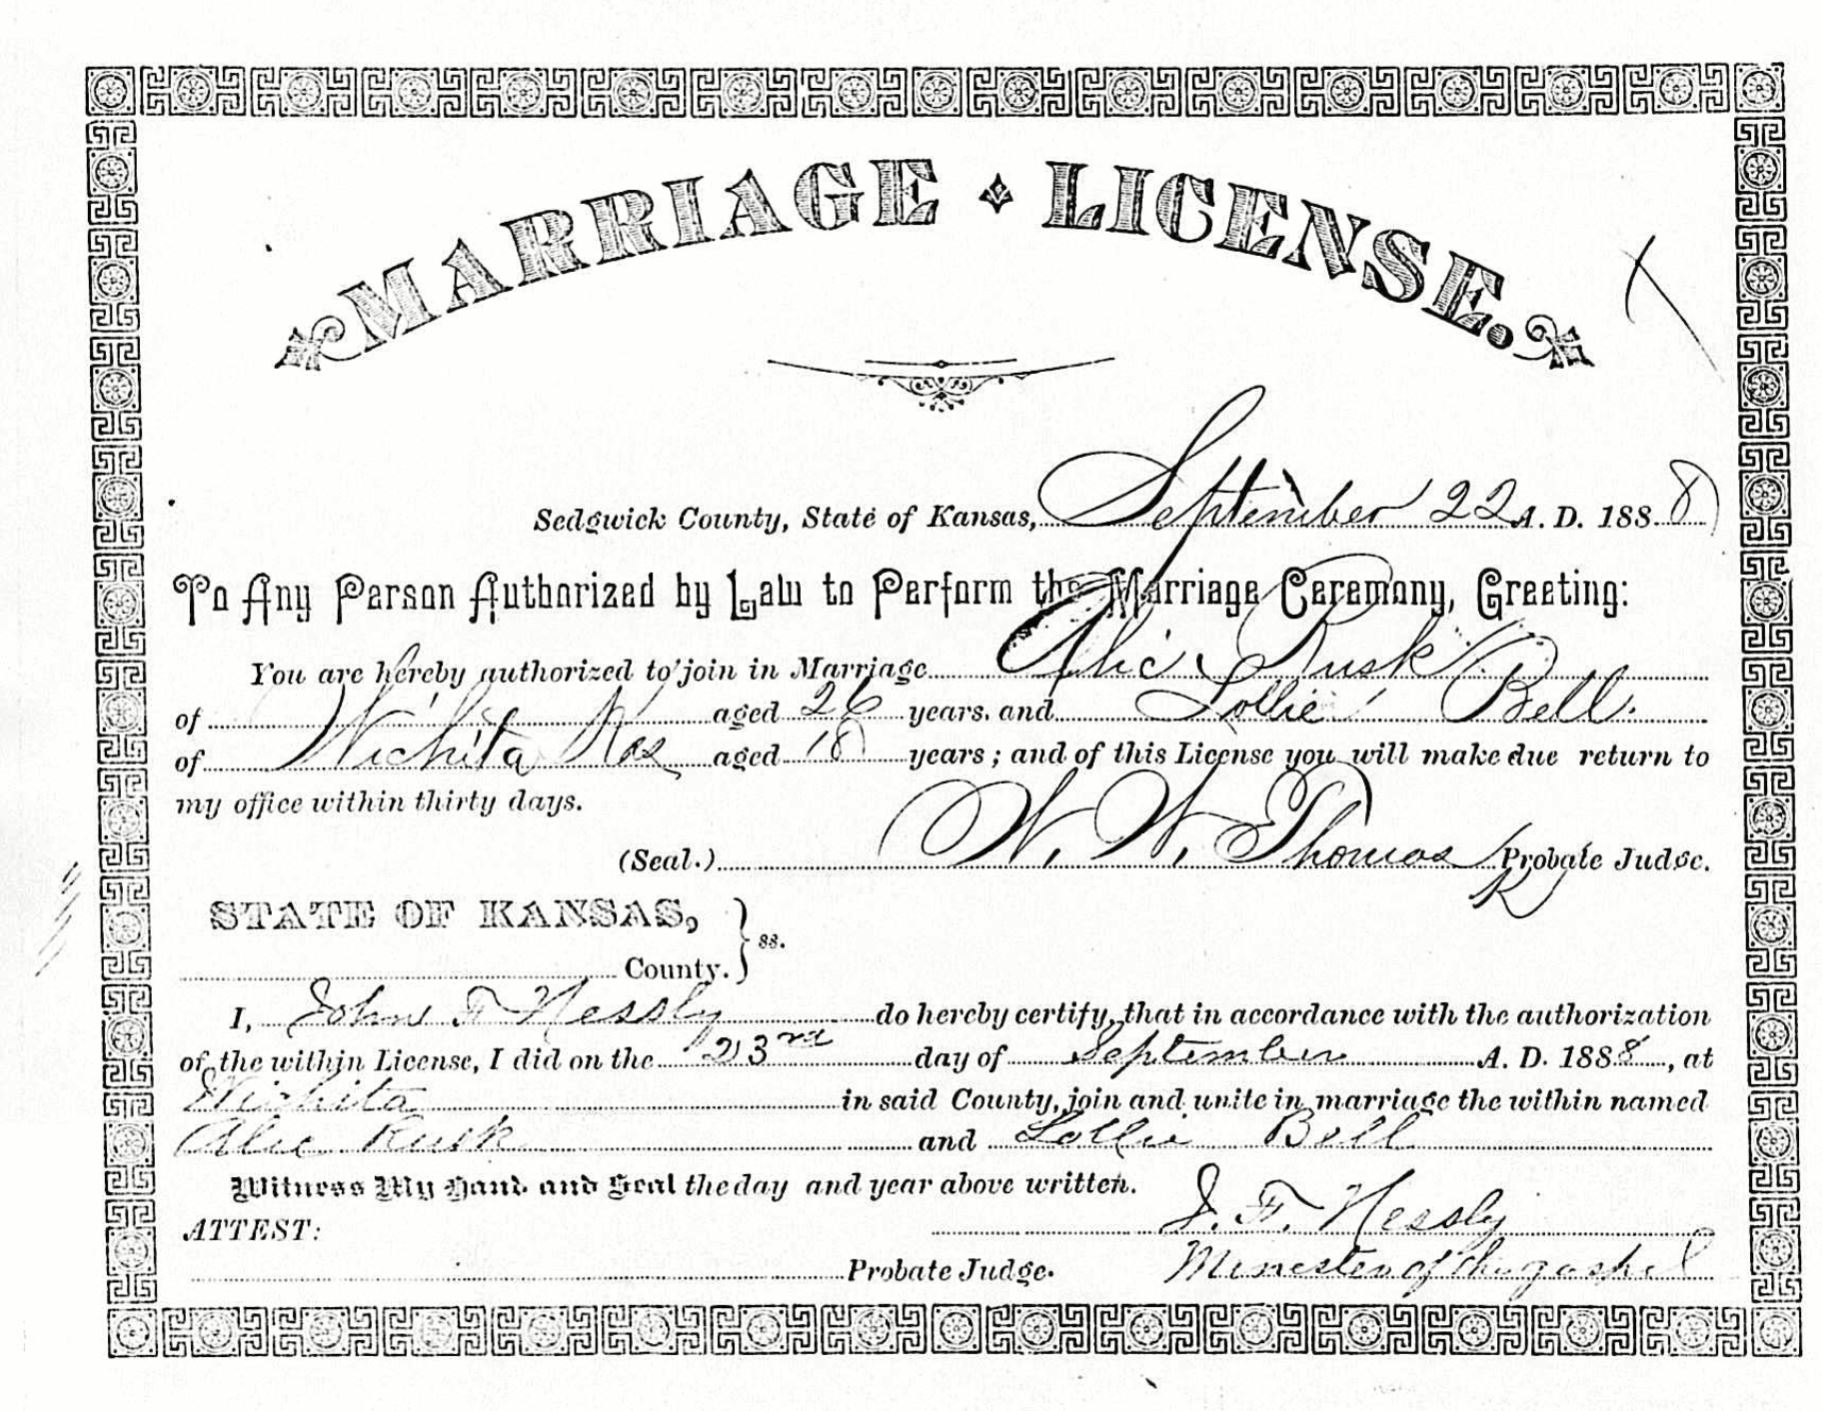 MARRIAGE LICENSE.
Sedgwick County, State of Kansas, September 22 A. D. 1888
To Any Person Authorized by Law to Perform the Marriage Ceremony, Greeting:
You are hereby authorized to join in Marriage Alic Rusk
of Wichita Kas aged 26 years, and Lollie Bell.
of Wichita Kas aged 18 years; and of this License you will make due return to
my office within thirty days.
(Seal.) W. W. Thomas Probate Judge.
STATE OF KANSAS,
County. } ss.
I, John F Nessly do hereby certify, that in accordance with the authorization
of the within License, I did on the 23rd day of September A. D. 1888, at
Wichita in said County, join and unite in marriage the within named
Alic Rusk and Lollie Bell
Witness My Hand and Seal the day and year above written.
ATTEST: J. F. Nessly
Probate Judge. Minester of the gospel